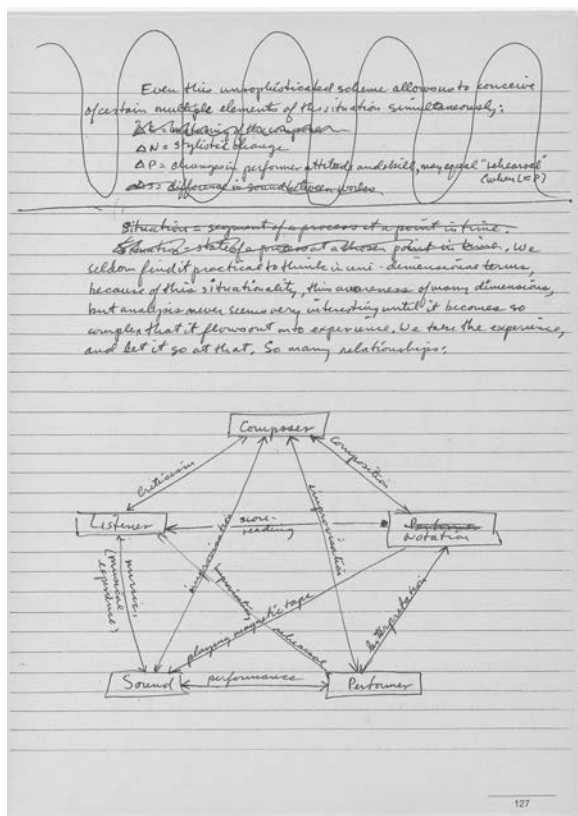 Even this unsophisticated scheme allows us to conceive
of certain multiple elements of this situation simultaneously:
of the composer
ΔN = stylistic change
ΔP = changes in performer attitude and skill, may equal "rehearsal"
(when L = P)
ΔS = difference in sound between works
Situation = segment of a process at a point in time.
Situation = state of a process at a chosen point in time. We
seldom find it practical to think in uni-dimensional terms,
because of this situationality, this awareness of many dimensions,
but analysis never seems very interesting until it becomes so
complex that it flows out into experience. We take the experience,
and let it go at that. So many relationships:
Composer
criticism
composition
Listener
score-
reading
Performer
Notation
improvisation
improvisation
music,
(musical
experience)
rehearsal
playing magnetic tape
interpretation
Sound
performance
Performer
127